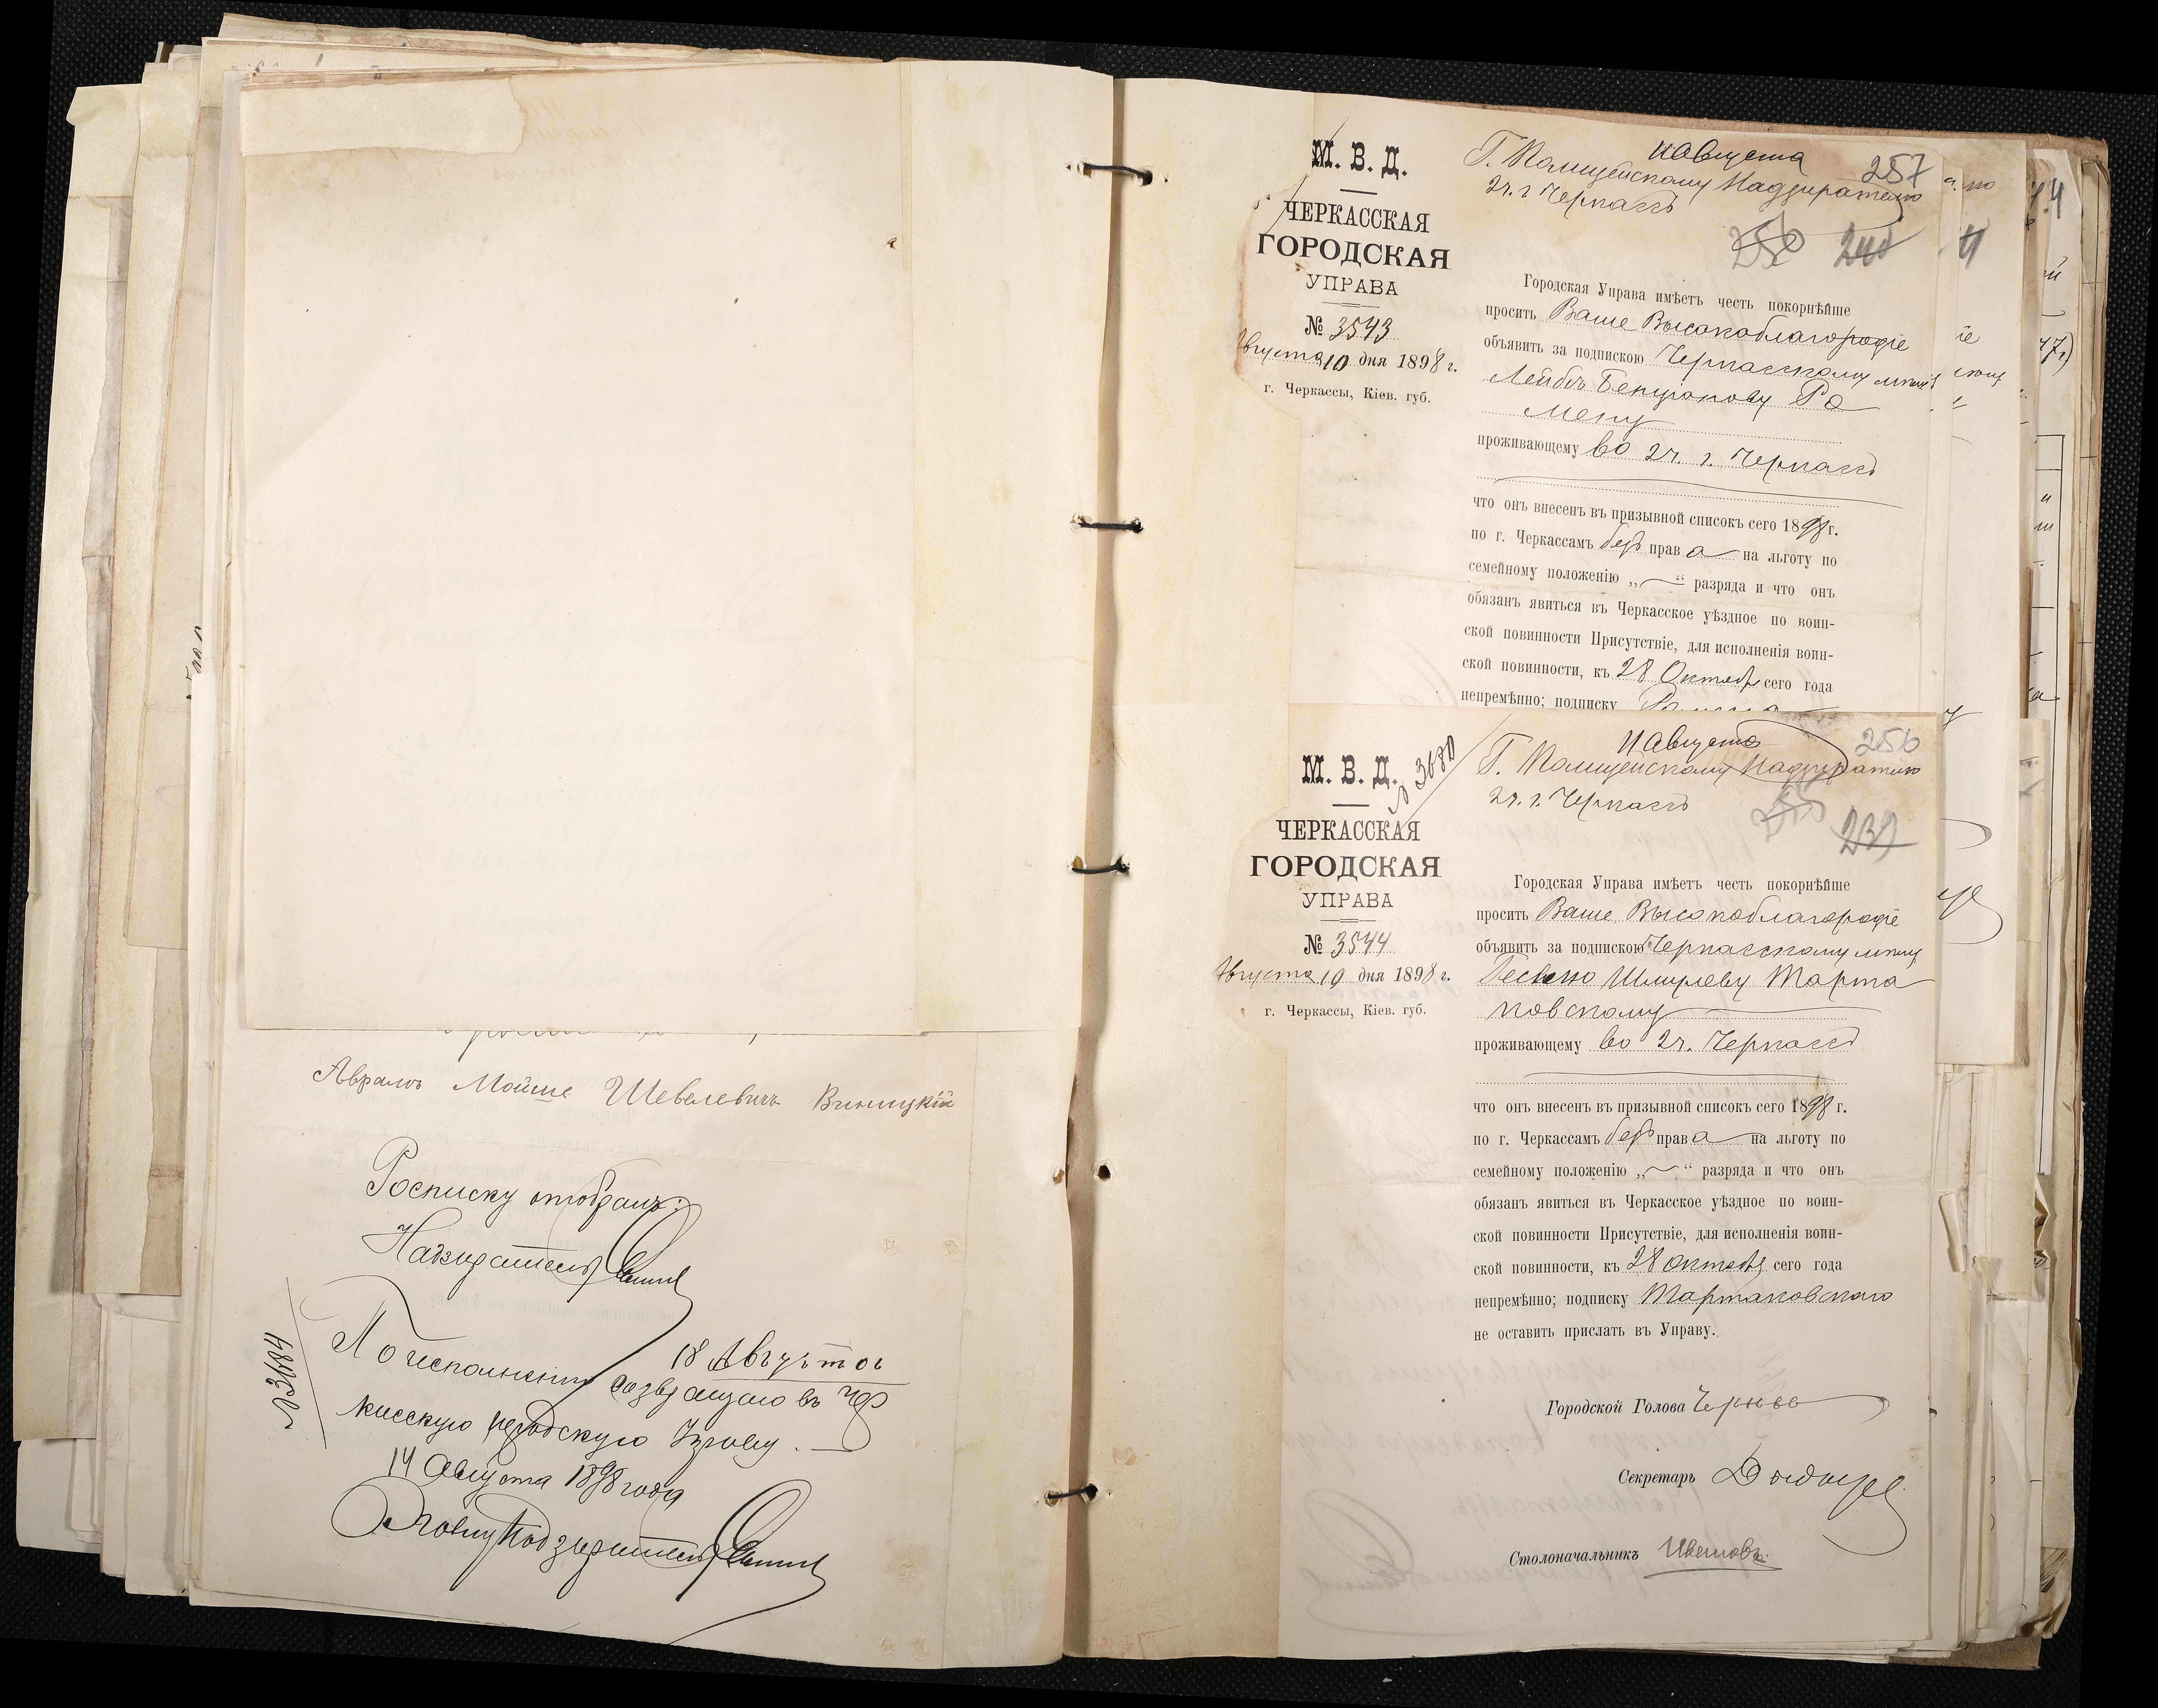 Аврамъ Мойше Шевелевичъ Виницкій
Росписку отобралъ:
Надзиратель
№3684
18 Августа
По исполненіи возвращаю въ Чер
касскую городскую Управу.
14 Августа 1898 года
Надзиратель
М. В. Д.
ЧЕРКАССКАЯ
ГОРОДСКАЯ
УПРАВА
№ 3543
Августа 10 дня 1898 г.
г. Черкассы, Кіев. губ.
11 Августа
257
Г. Полицейскому Надзирателю
2ч. г. Черкассъ
250 240
Городская Управа имѣетъ честь покорнѣйше
просить Ваше Высокоблагородіе
объявить за подпискою Черкасскому мѣщ.
Лейбѣ Бенціонову Ро
мену
проживающему во 2ч. г. Черкассъ
что онъ внесенъ въ призывной списокъ сего 1898 г.
по г. Черкассамъ безъ права на льготу по
семейному положенію „—“ разряда и что онъ
обязанъ явиться въ Черкасское уѣздное по воин-
ской повинности Присутствіе, для исполненія воин-
ской повинности, къ 28 Октября сего года
непремѣнно; подписку Ромена
М. В. Д.
№ 3680
ЧЕРКАССКАЯ
ГОРОДСКАЯ
УПРАВА
№ 3544
Августа 10 дня 1898 г.
г. Черкассы, Кіев. губ.
11 Августа
256
Г. Полицейскому Надзирателю
2ч. г. Черкассъ
239
Городская Управа имѣетъ честь покорнѣйше
просить Ваше Высокоблагородіе
объявить за подпискою Черкасскому мѣщ.
Шмулеву Марта
ковскому
проживающему во 2ч. Черкассъ
что онъ внесенъ въ призывной списокъ сего 1898 г.
по г. Черкассамъ безъ права на льготу по
семейному положенію „—“ разряда и что онъ
обязанъ явиться въ Черкасское уѣздное по воин-
ской повинности Присутствіе, для исполненія воин-
ской повинности, къ 28 Октября сего года
непремѣнно; подписку Мартаковскаго
не оставить прислать въ Управу.
Городской Голова
Секретарь
Столоначальникъ